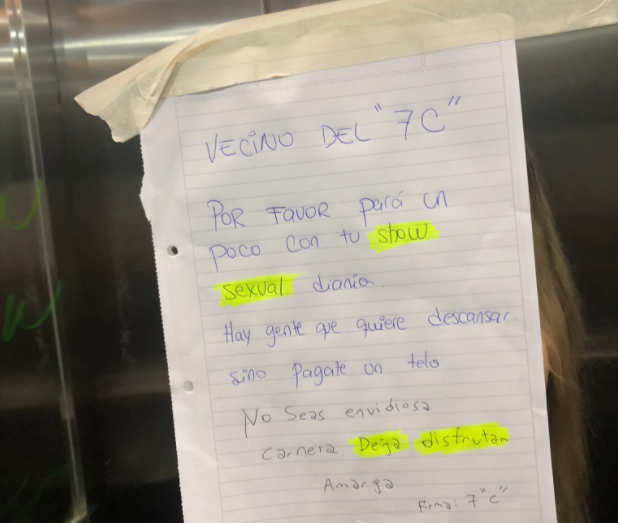 VECINO DEL "7C"
POR FAVOR pará un
poco con tu show
sexual diario.
Hay gente que quiere descansar.
sino Pagate un telo
No seas envidiosa
carnera Deja disfrutar
Amarga
Firma: 7"C"